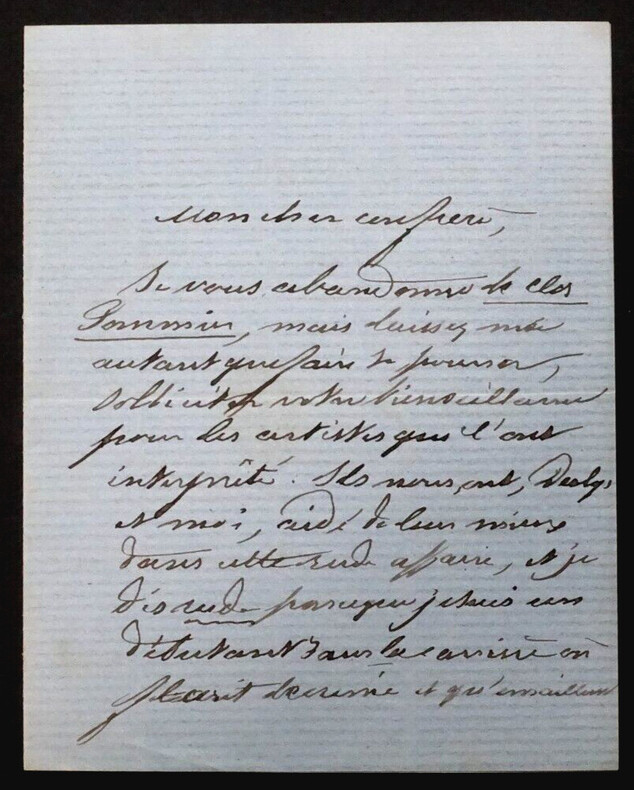 Mon cher confrère,
Je vous abandonne le clos
Pommier, mais laissez moi
autant que faire se pourra,
solliciter votre bienveillance
pour les artistes qui l'ont
interprêté. Ils nous ont, Deslys
et moi, aidé de leur mieux
dans cette rude affaire, et je
dis rude parceque je suis un
débutant dans la carrière où
fleurit et qu'en